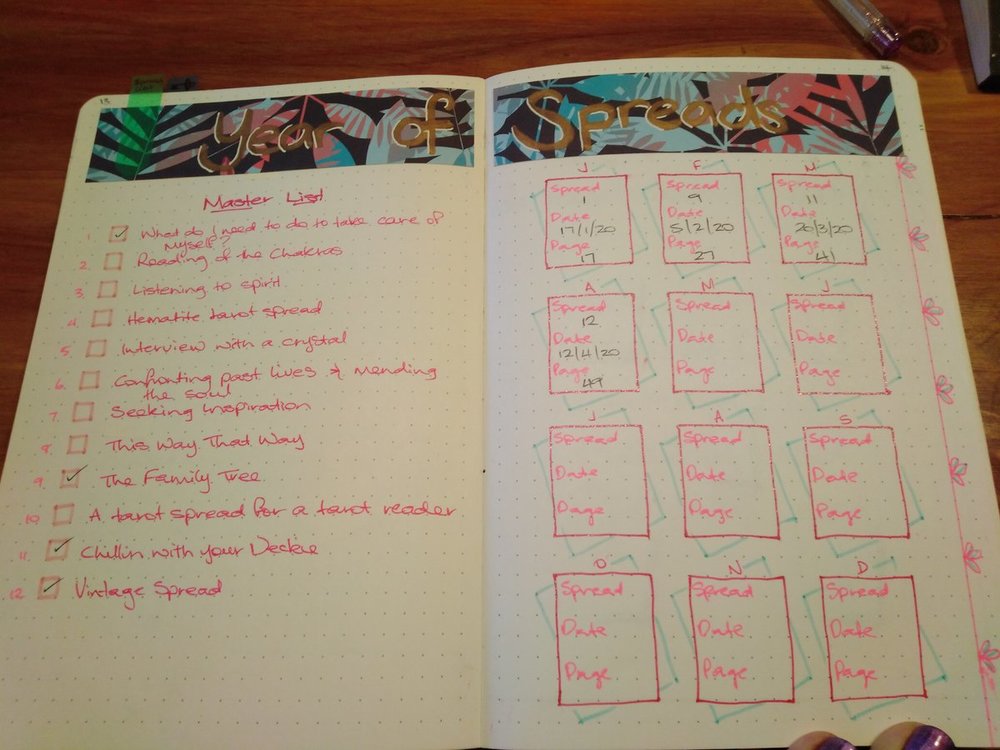 13
14
Year of Spreads
Master List
1. What do I need to do to take care of
Myself?
2. Reading of the Chakras
3. Listening to spirit
4. Hematite tarot spread
5. Interview with a crystal
6. Confronting past lives & mending
the soul
7. Seeking Inspiration
8. This Way That Way
9. The Family Tree
10. A tarot spread for a tarot reader
11. Chillin with your Deckie
12. Vintage Spread
J F M
Spread Spread Spread
1 9 11
Date Date Date
17/1/20 5/2/20 20/3/20
Page Page Page
17 27 41
A M J
Spread Spread Spread
12
Date Date Date
12/4/20
Page Page Page
49
J A S
Spread Spread Spread
Date Date Date
Page Page Page
O N D
Spread Spread Spread
Date Date Date
Page Page Page